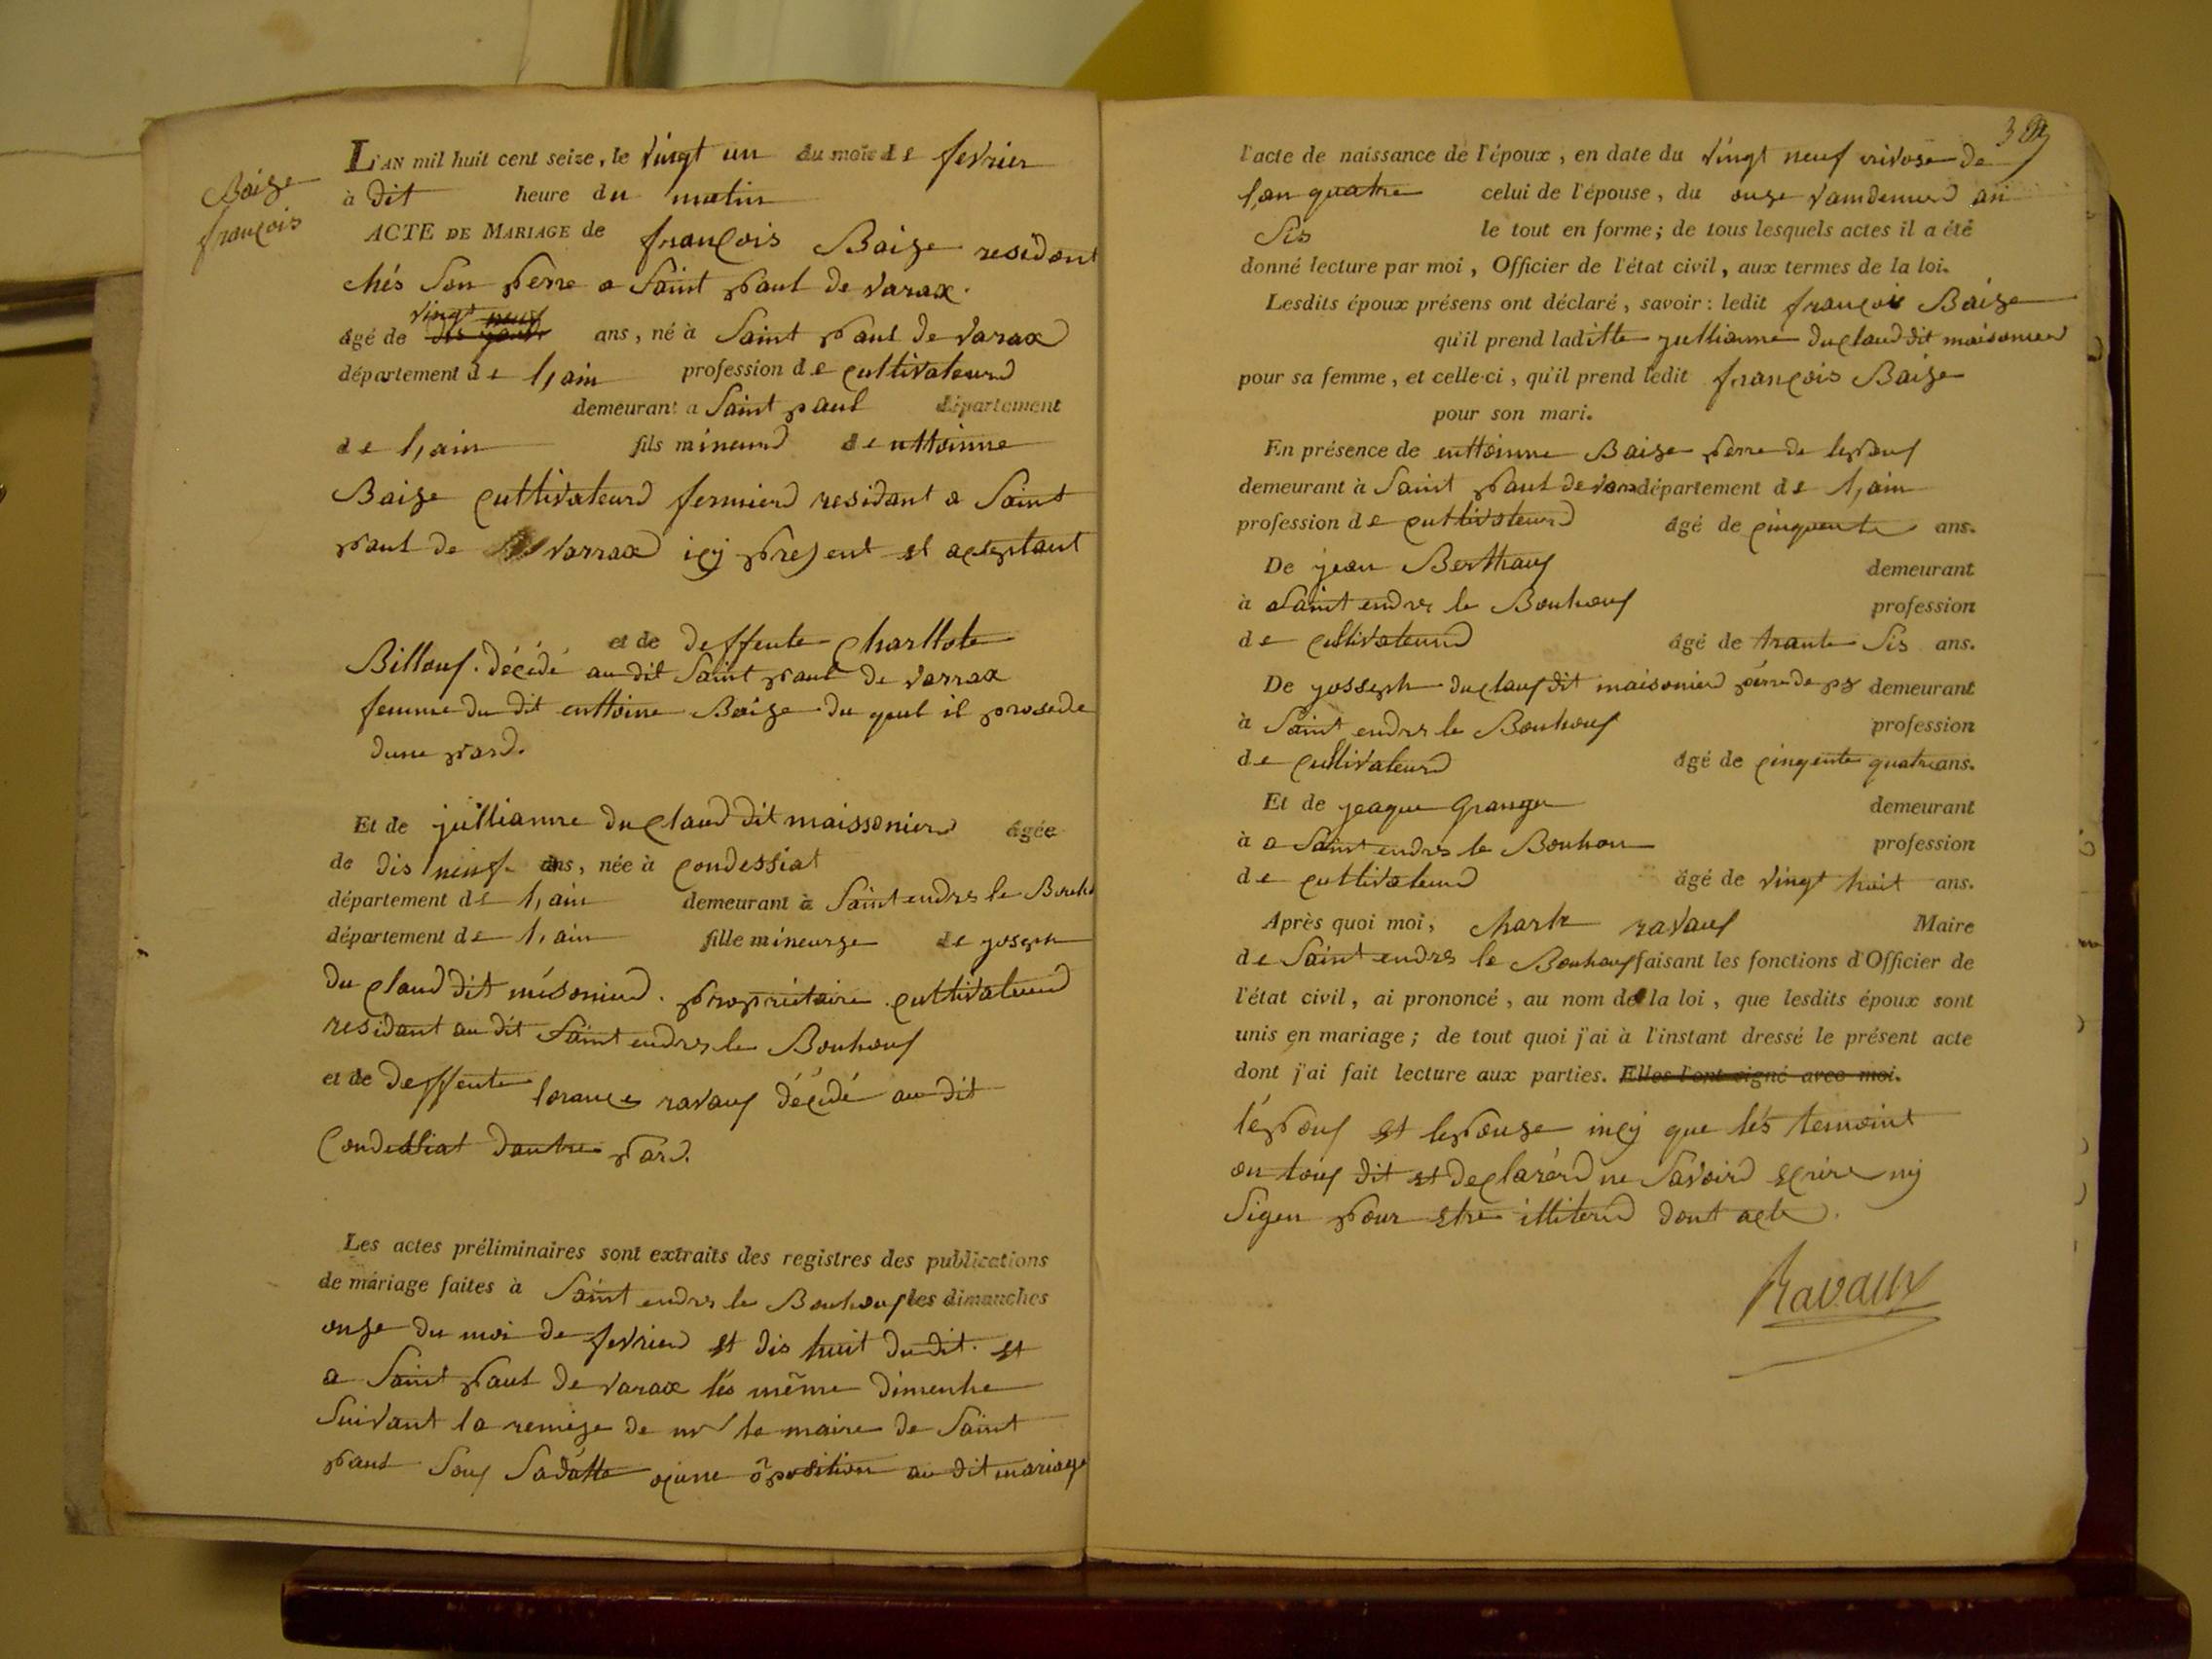 Baize
françois
L'AN mil huit cent seize, le vingt un du mois de fevrier
à dit heure du matin
ACTE DE MARIAGE de françois Baize residant
chés son perre a Saint paul de varax.
vingt neuf
âgé de ans, né à Saint paul de varax
département de l,ain profession de cultivateur
demeurant a Saint paul département
de l,ain fils mineur de anttoinne
Baize cultivateur fermier residant a Saint
paul de varrax icy present et aceptant
et de deffente Charllote
Billouf. décédé au dit Saint paul de varrax
femme du dit enttoine Baize du quel il prosede
dune pard.
Et de jullianne du claud dit maissonier âgée
de dis neuf ans, née à Condessiat
département de l,ain demeurant à Saint endre le Bouho
département de l,ain fille mineurze de joseph
du claud dit mésonier. propriétaire cultivateur
residant au dit Saint endre le Bouhouf
et de deffente lorance ravauf décédé au dit
Condessiat dautre pard.
Les actes préliminaires sont extraits des registres des publications
de mariage faites à Saint endre le Bouhouf les dimanches
onze du moi de fevrier et dis huit du dit. et
a Saint paul de varax lés même dimenhe
suivant la remize de mr le maire de Saint
paul sous sadatte ocune ôposition au dit mariage
l'acte de naissance de l'époux, en date du vingt neuf nivose de
l,an quatre celui de l'épouse, du onze vamdemier an
sis le tout en forme; de tous lesquels actes il a été
donné lecture par moi, Officier de l'état civil, aux termes de la loi.
Lesdits époux présens ont déclaré, savoir: ledit françois Baize
qu'il prend laditte jullianne du claud dit maisonier
pour sa femme, et celle-ci, qu'il prend ledit françois Baize
pour son mari.
En présence de enttoinne Baize perre de lepouf
demeurant à Saint paul de varax département de l,ain
profession de cultivateur âgé de cinquente ans.
De jean Berthauf demeurant
à a Saint endre le Bouhouf profession
de cultivateur âgé de trante sis ans.
De josseph du clauf dit maisonier perre de demeurant
à Saint endre le Bouhouf profession
de cultivateur âgé de cinqente quatre ans.
Et de jeaque Granger demeurant
à a Saint endre le Bouhou profession
de cultivateur âgé de vingt huit ans.
Après quoi moi, Charle ravauf Maire
de Saint endre le Bouhouf faisant les fonctions d'Officier de
l'état civil, ai prononcé, au nom de la loi, que lesdits époux sont
unis en mariage; de tout quoi j'ai à l'instant dressé le présent acte
dont j'ai fait lecture aux parties. Elles l'ont signé avec moi.
lépouf et lepouze incy que lés temoint
on touf dit et declarér ne savoir ecrire ny
signer pour etre illiterd dont acte.
Ravaux